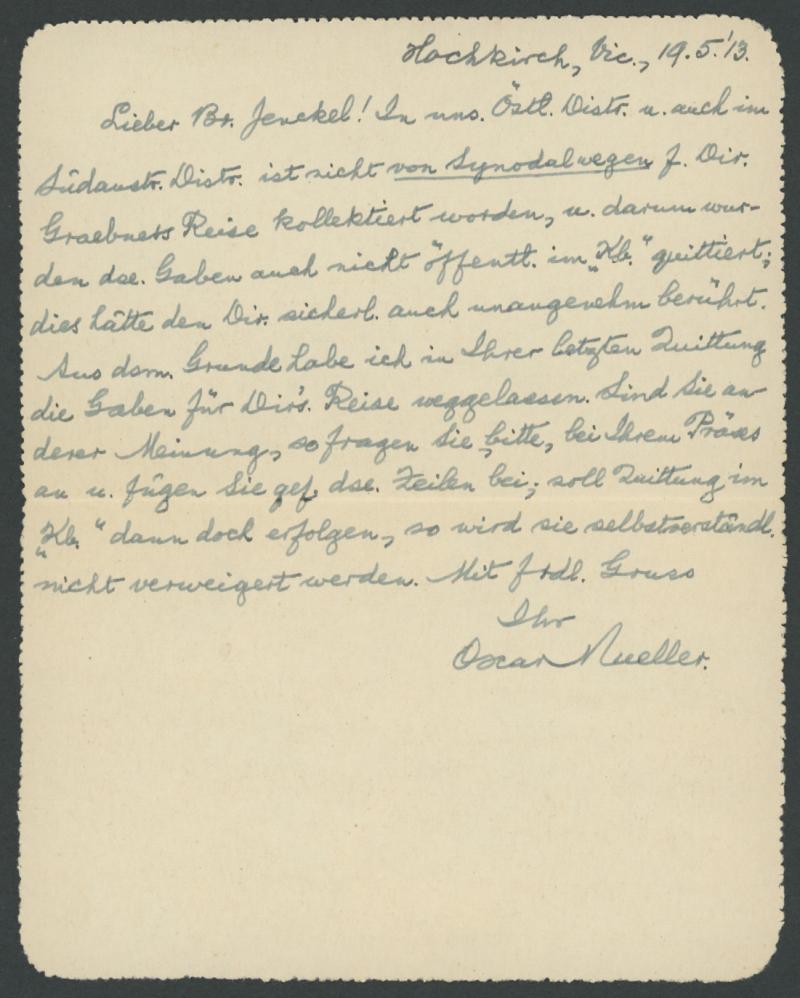 Hochkirch, Vic., 19.5.'13.
Lieber Br. Jenckel! In uns. Östl. Distr. u. auch im
Südaustr. Distr. ist nicht von Synodalwegen f. Dir.
Graebners Reise kollektiert worden, u. darum wur-
den dse. Gaben auch nicht öffentl. im „Kb." quittiert;
dies hätte den Dir. sicherl. auch unangenehm berührt.
Aus dsm. Grunde habe ich in Ihrer letzten Quittung
die Gaben für Dir's. Reise weggelassen. Sind Sie an-
derer Meinung, so fragen Sie, bitte, bei Ihrem Präses
an u. fügen Sie gef. dse. Zeilen bei; soll Quittung im
„Kb." dann doch erfolgen, so wird sie selbstverständl.
nicht verweigert werden. Mit frdl. Gruss
Ihr
Oscar Mueller.